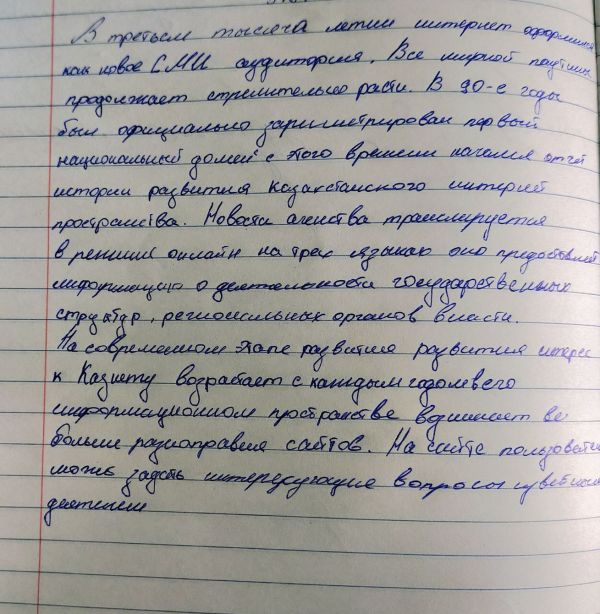 В третьем тысяча летии интернет оформился
как новое СМИ аудитория. Все мирной паутины
продолжает стремительно расти. В 90-е годы
был официально зарегистрирован первый
национальный домен с этого времени начался отчёт
истории развития казахстанского интернет
пространства. Новости агенства транслируется
в режиме онлайн на трех языках оно предоставляет
информацию о деятельности государственных
структур, региональных органов власти.
На современном этапе развития развития интерес
к Казнету возрастает с каждым годом в его
информационном пространстве возникает все
больше разноправия сайтов. На сайте пользователь
может задать интересующие вопросы
деятелем